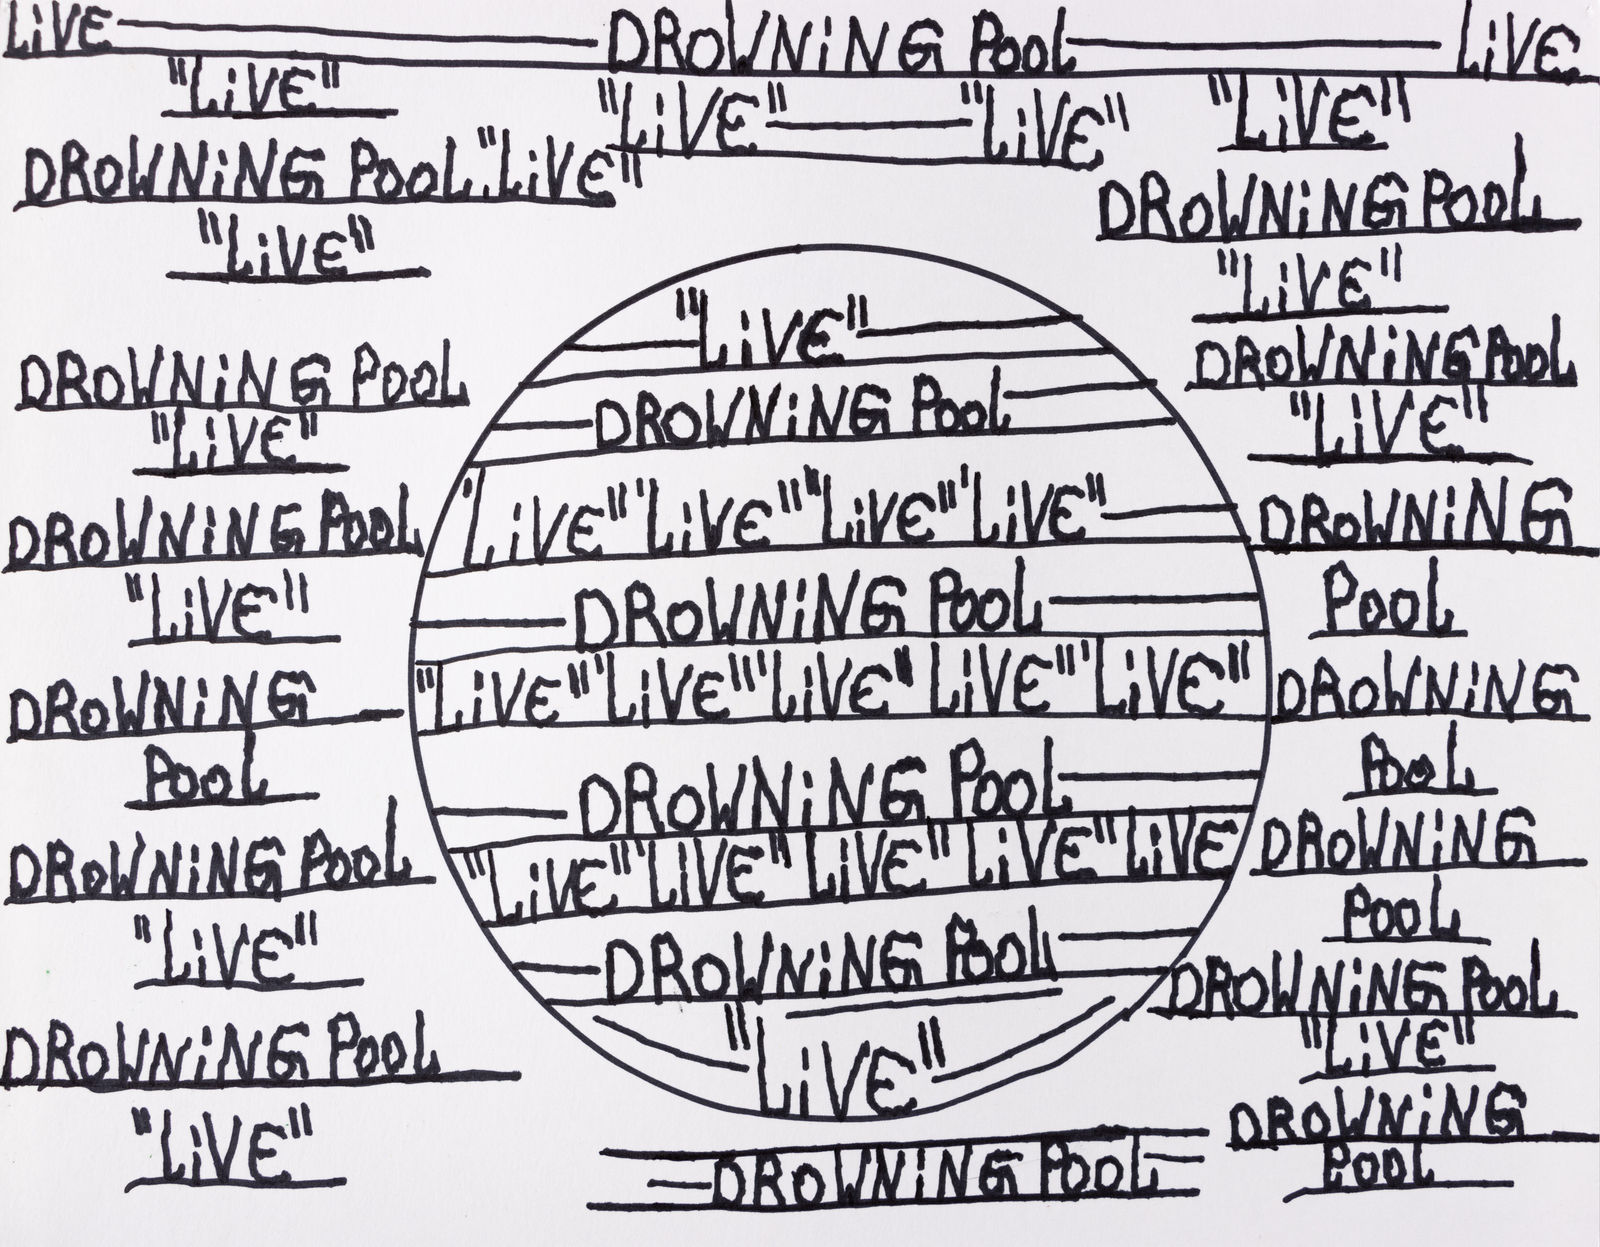 LiVE DROWNiNG POOL LiVE
"LiVE"
"LiVE" "LiVE"
"LiVE"
DROWNiNG POOL "LiVE"
"LiVE"
DROWNiNG POOL
"LiVE"
DROWNiNG POOL
"LiVE"
DROWNiNG
POOL
DROWNiNG POOL
"LiVE"
DROWNiNG POOL
"LiVE"
"LiVE"
DROWNiNG POOL
'LiVE" 'LiVE" "LiVE" 'LiVE"
DROWNiNG POOL
"LiVE" 'LiVE" "LiVE" LiVE" "LiVE"
DROWNiNG POOL
"LiVE" 'LiVE" LiVE" LiVE" LiVE
DROWNiNG POOL
"LiVE"
DROWNiNG POOL
DROWNiNG POOL
"LiVE"
DROWNiNG POOL
"LiVE"
DROWNiNG
POOL
DROWNiNG
POOL
DROWNiNG
POOL
DROWNiNG POOL
"LiVE"
DROWNiNG
POOL